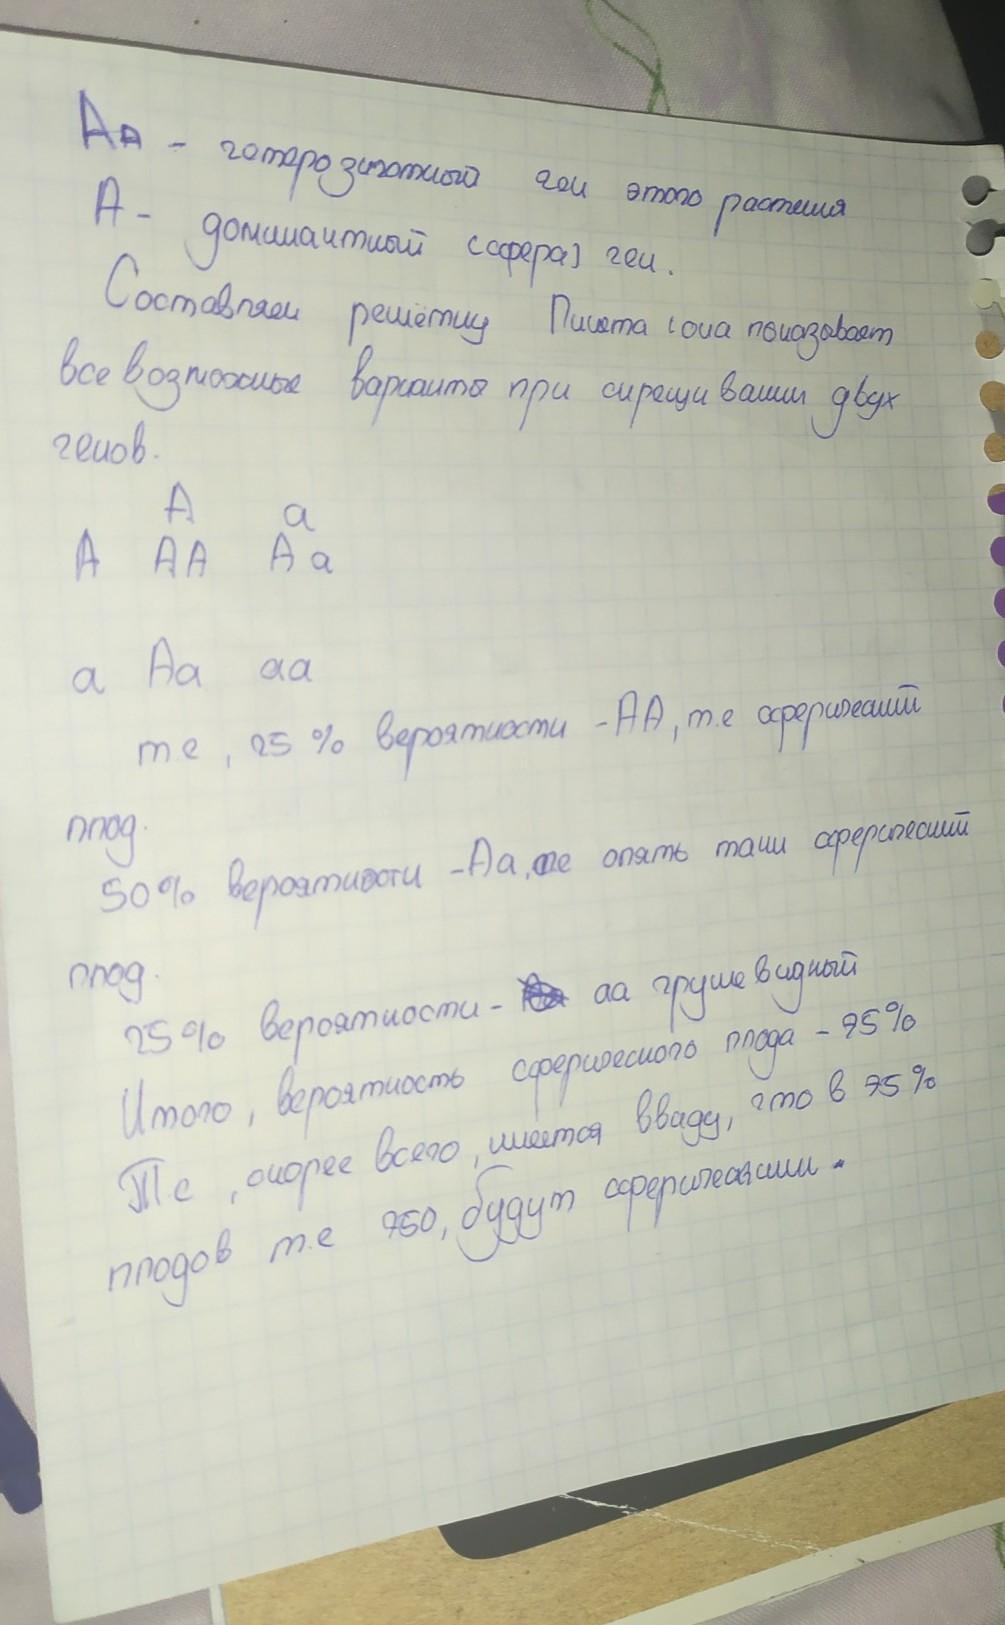 Аа - гетерозиготный ген этого растения
А - доминантный (сфера) ген.
Составляем решётку Пинета (она показывает
все возможные варианты при скрещивании двух
генов.
А а
А АА Аа
а Аа аа
т е, 25 % вероятности - АА, т.е сферический
плод.
50% вероятности - Аа, те опять таки сферический
плод.
25% вероятности - аа грушевидный
Итого, вероятность сферического плода - 75%
Те, скорее всего, имеется вваду, что в 75%
плодов т.е 750, будут сферическими.